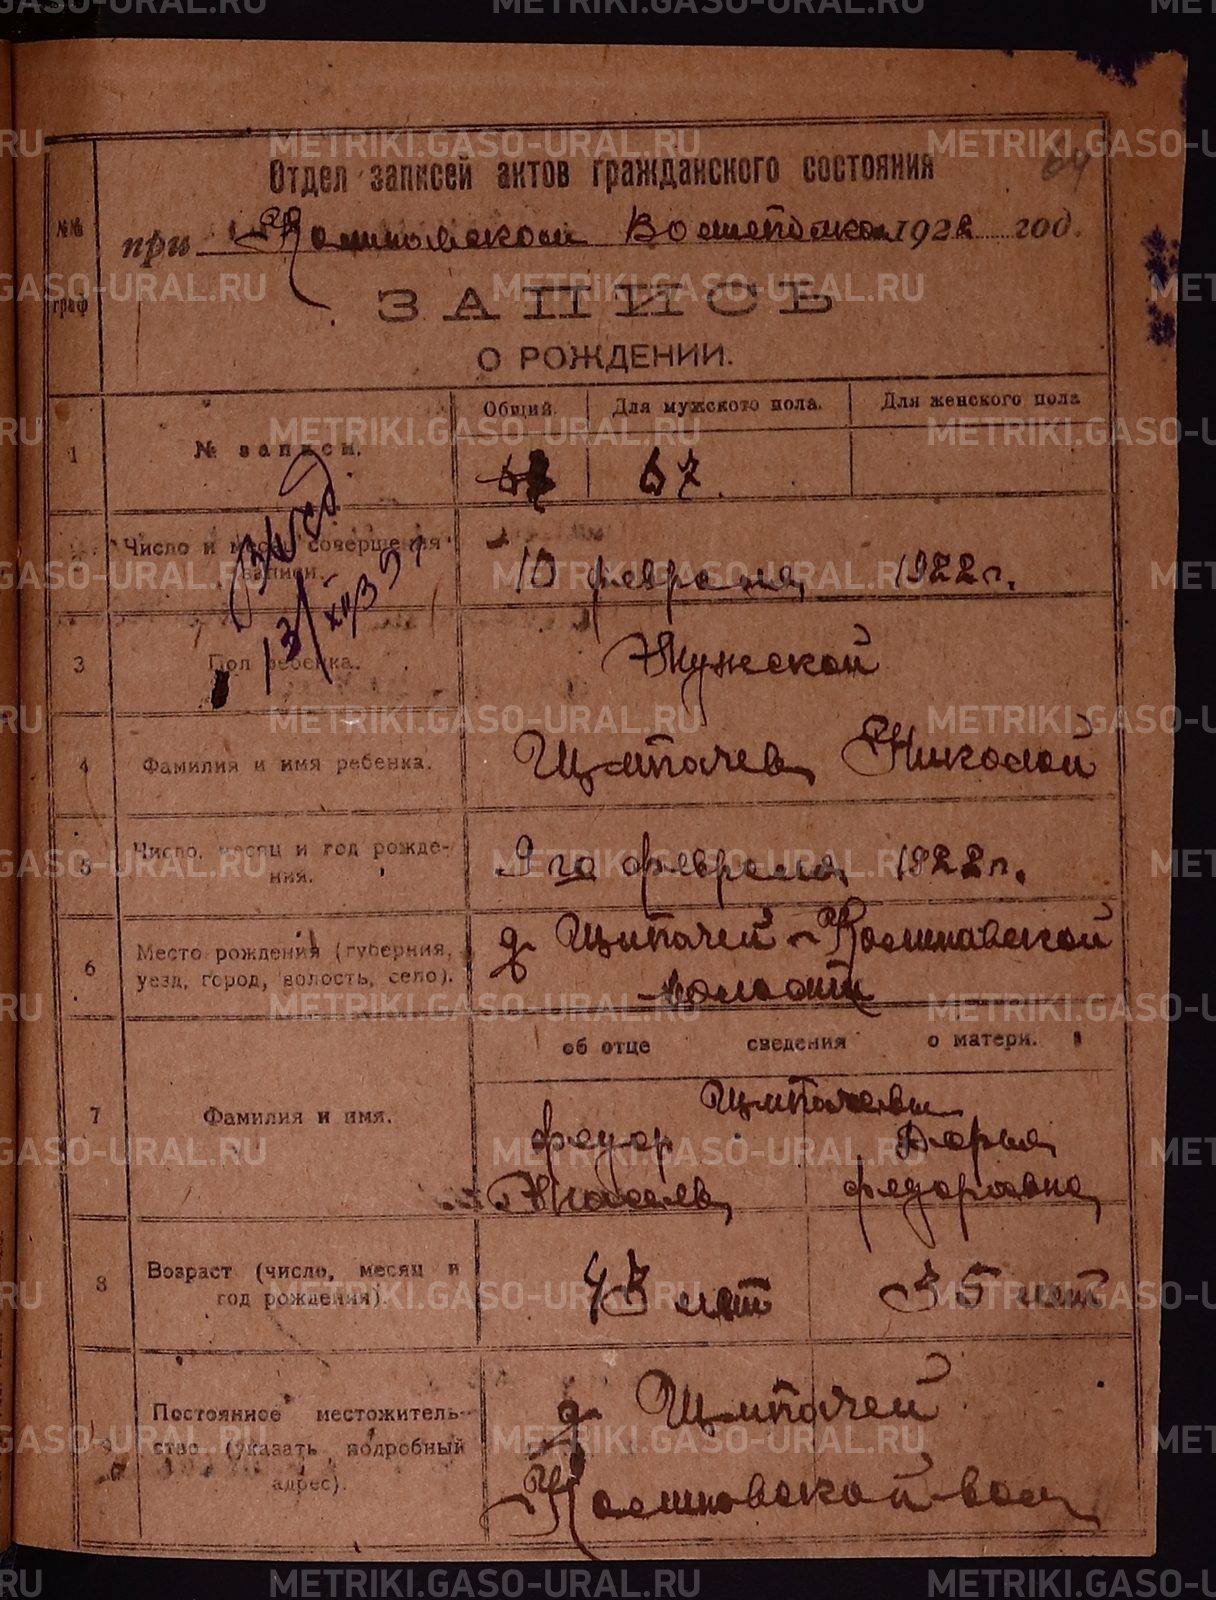 METRIKI.GASO-URAL.RU
Отдел записей актов гражданского состояния
64
№№ граф
при Волисполкоме 1922 год.
ЗАПИСЬ
О РОЖДЕНИИ.
1
№ записи.
Общий.
Для мужского пола.
Для женского пола
67
67.
Число и месяц совершения записи.
10 февраля 1922 г.
13/XII 39
3
Пол ребенка.
Мужской
4
Фамилия и имя ребенка.
Щипачев Николай
5
Число, месяц и год рождения.
9го февраля 1922 г.
6
Место рождения (губерния, уезд, город, волость, село).
д Щипачей
волости
об отце сведения о матери.
7
Фамилия и имя.
Щипачевы
Федор
Дарья
Федоровна
8
Возраст (число, месяц и год рождения).
43 лет
35 лет
9
Постоянное местожительство (указать подробный адрес).
д Щипачей
вол